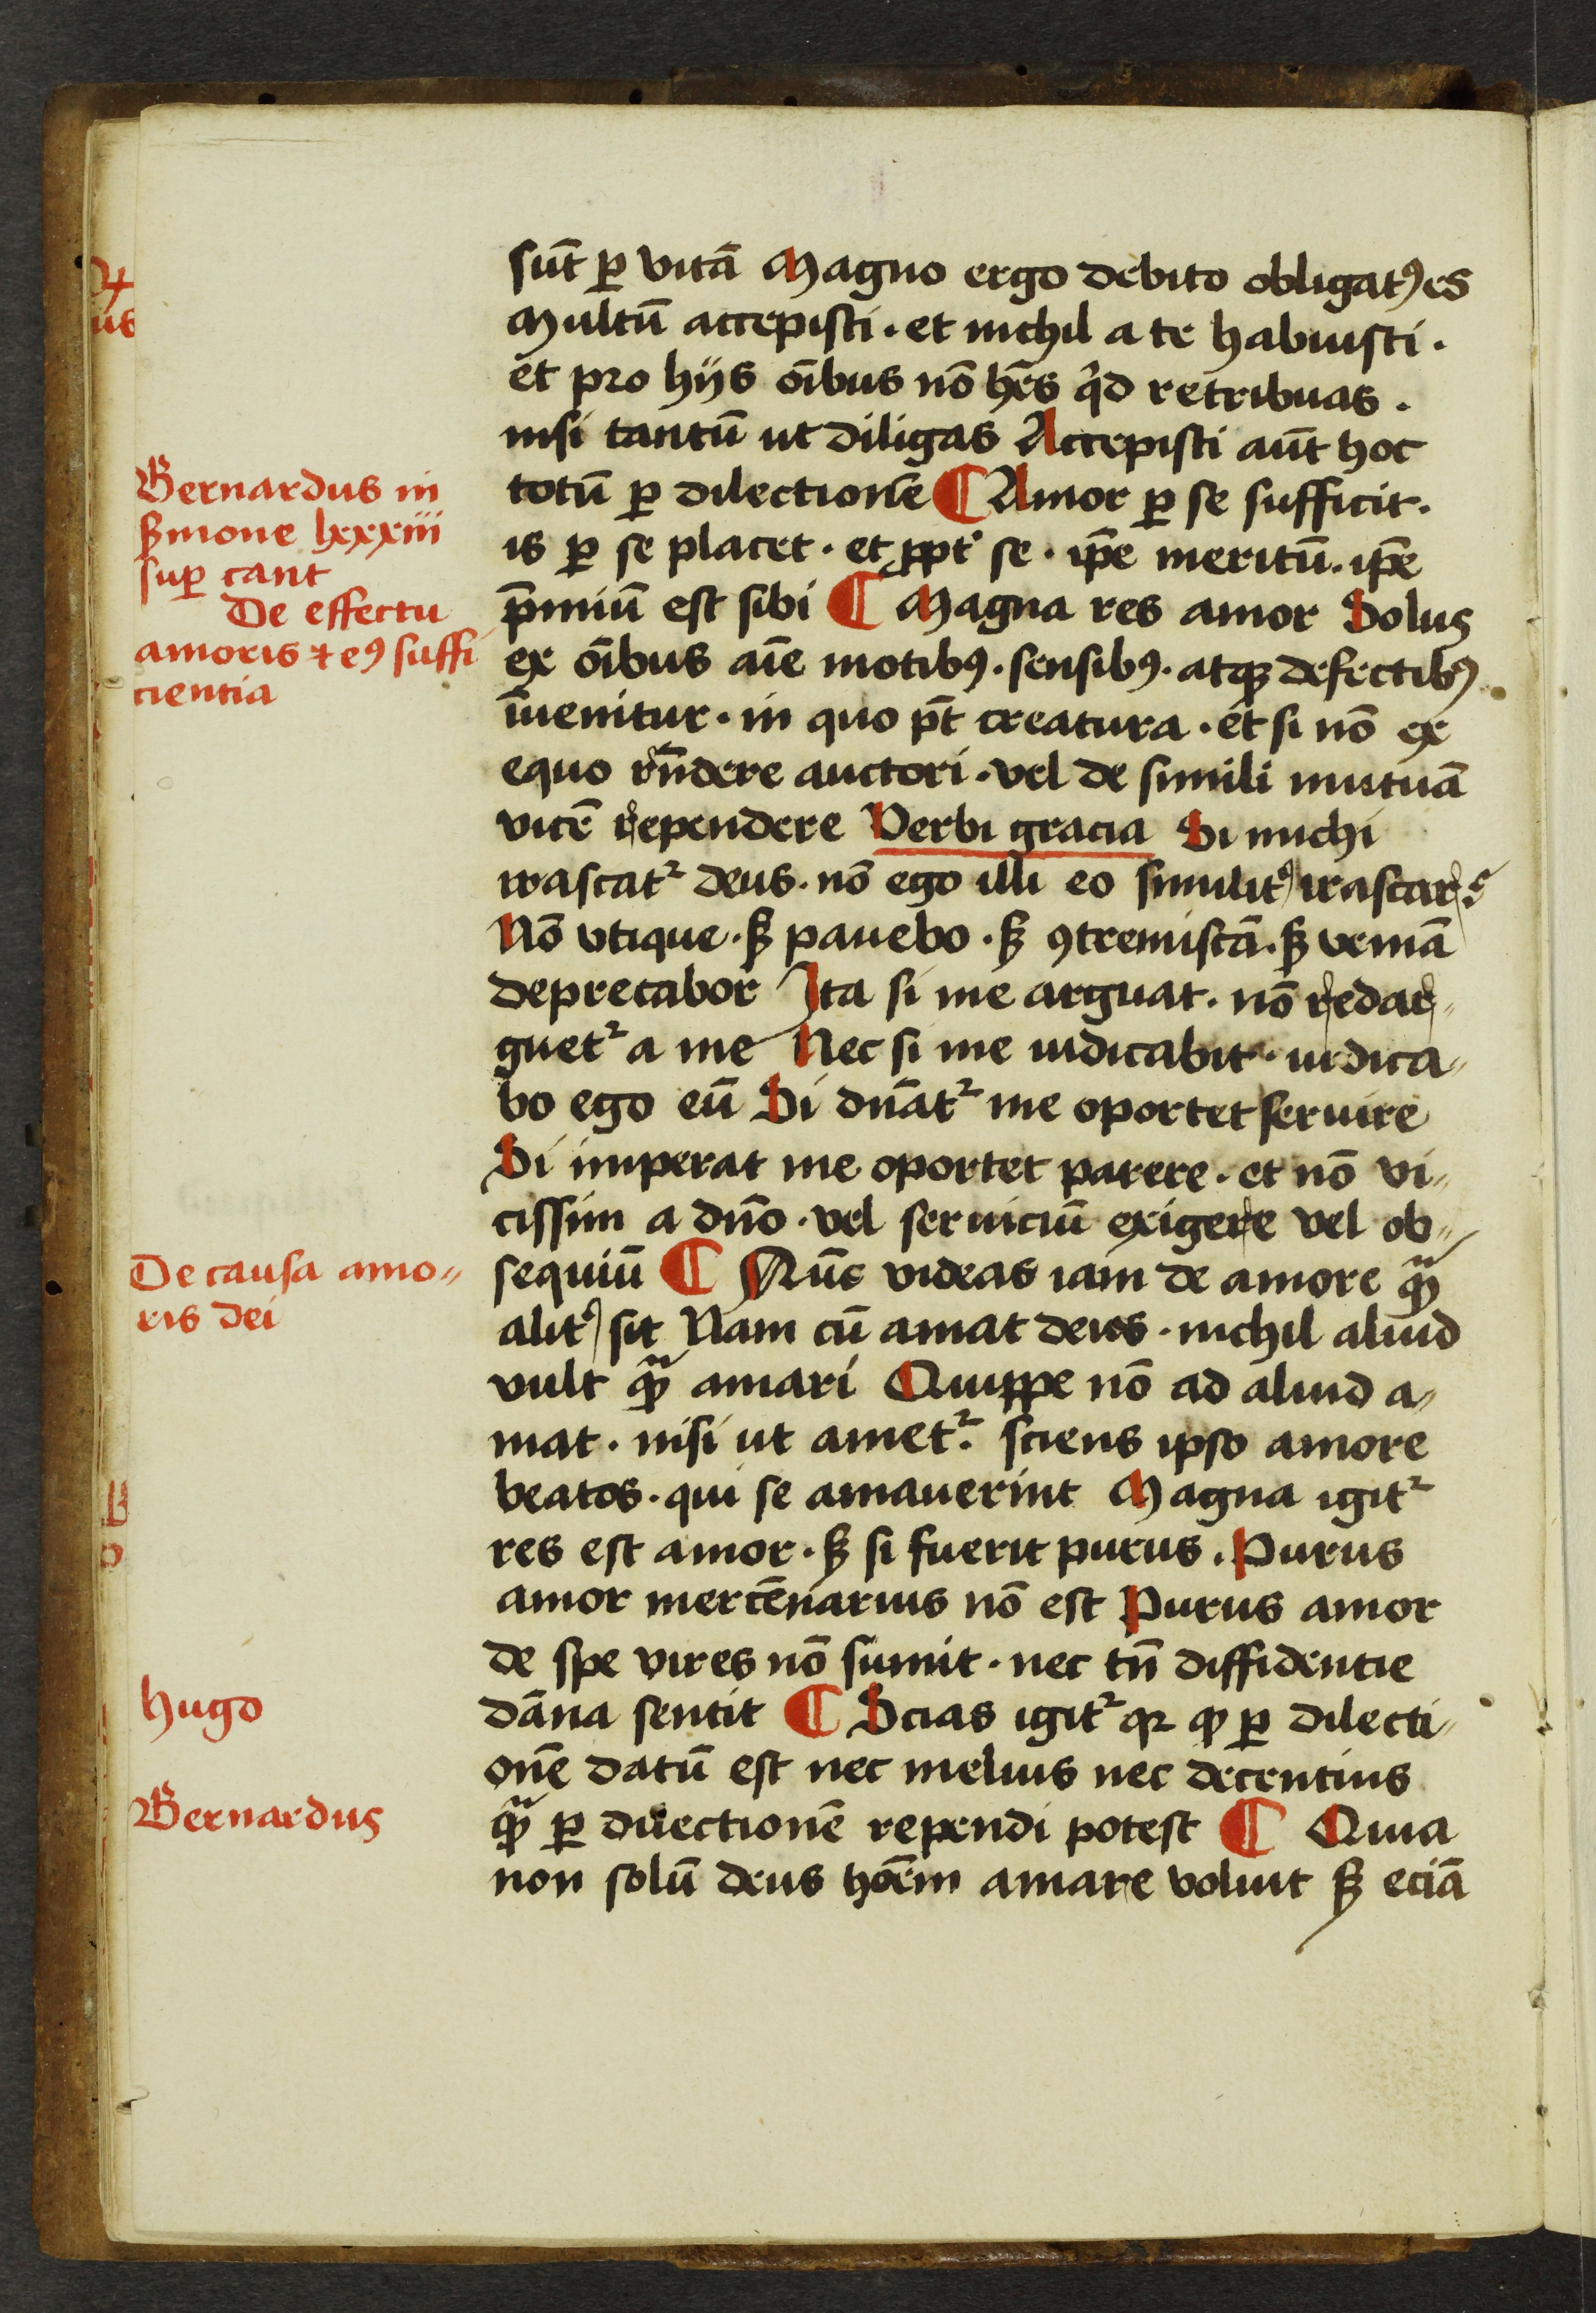 sūt ꝑ vitā Magno ergo debito obligatꝰ es
Multū accepisti · et nichil a te habuisti ·
et pro hijs oībus nō hēs qͥd retribuas ·
nisi tantū ut diligas Accepisti aūt hoc
totū ꝑ dilectionē ¶ Amor ꝑ se sufficit ·
is ꝑ se placet · et ꝓpt̛ se · ip̄e meritū · ip̄e
p̄miū est sibi ¶ Magna res amor Solus
ex oībus aīe motibꝰ · sensibꝰ · atqꝫ defectibꝰ
īuenitur · in quo pōt creatura · et si nō ex
equo rn̄dere auctori · vel de simili mutuā
vicē rependere Verbi gracia Si michi
irascatᷣ deus · nō ego illi eo similitꝰ irascar ?
Nō vtique · sꝫ pauebo · sꝫ ꝯtremiscā · sꝫ veniā
deprecabor Ita si me arguat · nō redar„
guetᷣ a me Nec si me iudicabit · iudica„
bo ego eū Si dn̄atᷣ me oportet seruire
Si imperat me oportet parere · et nō vi„
cissim a dn̄o · vel seruiciū exigere vel ob„
sequiū ¶ Nūc videas iam de amore qͣꝫ
alitꝰ sit Nam cū amat deus · nichil aliud
vult qͣꝫ amari Quippe nō ad aliud a„
mat · nisi ut ametᷣ · sciens ipso amore
beatos · qui se amauerint Magna igitᷣ
res est amor · sꝫ si fuerit purus · Purus
amor mercēnarius nō est Purus amor
de spe vires nō sumit · nec tn̄ diffidentie
dāna sentit ¶ Scias igitᷣ qꝛ ꝙ ꝑ dilecti„
onē datū est nec melius nec decentius
qͣꝫ ꝑ dilectionē rependi potest ¶ Quia
non solū deus hoēm amare voluit sꝫ eciā
Bernardus in
s̛mone lxxxiii
suꝑ cant
De effectu
amoris ⁊ eꝰ suffi
cientia
De causa amo„
ris dei
Hugo
Bernardus